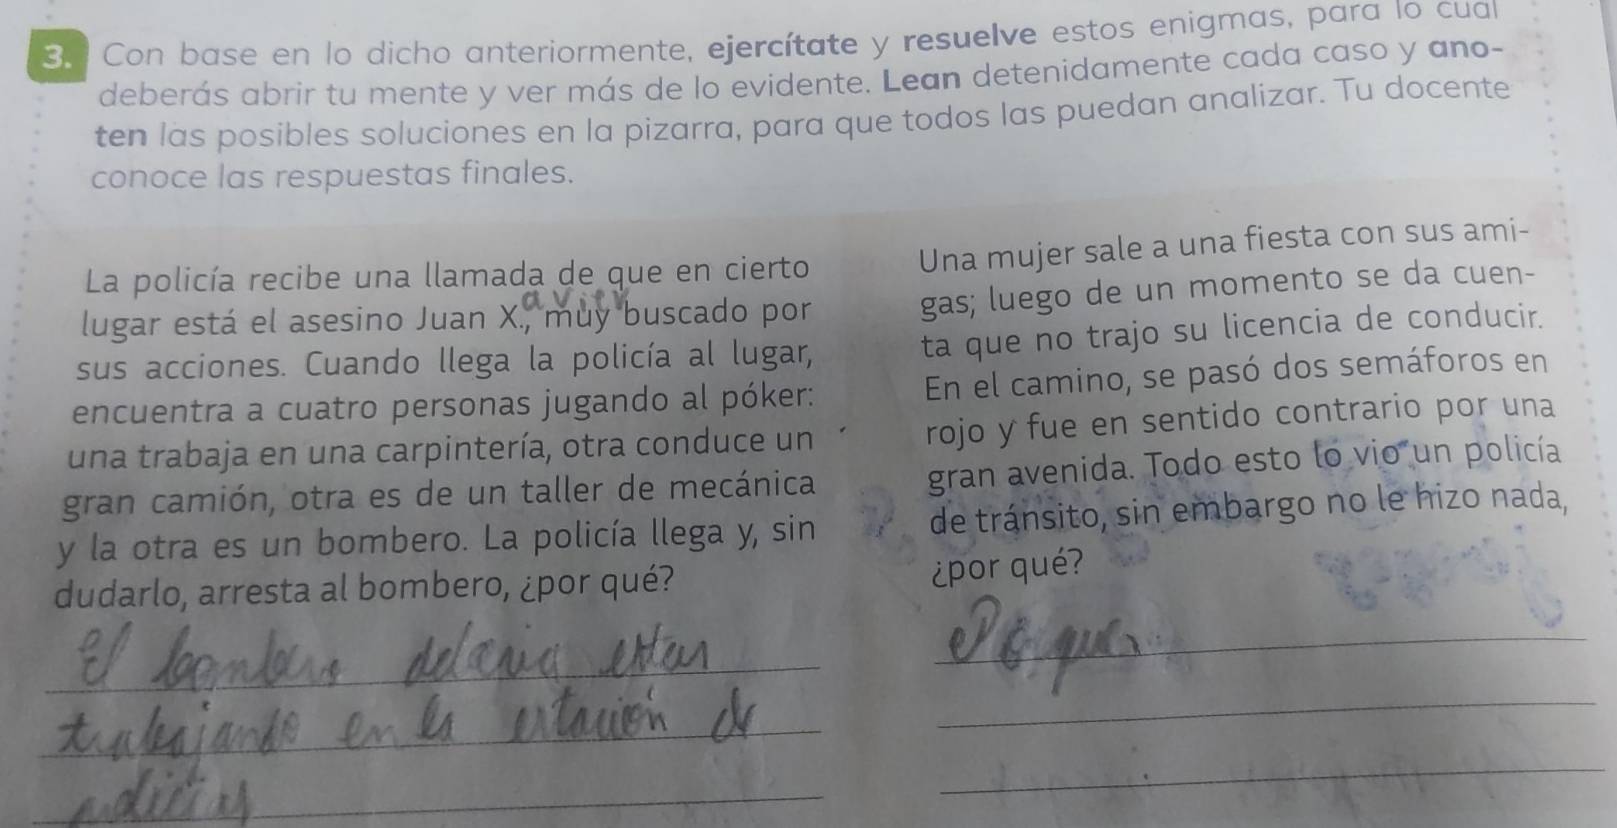 3. Con base en lo dicho anteriormente, ejercítate y resuelve estos enigmas, para lo cual
deberás abrir tu mente y ver más de lo evidente. Lean detenidamente cada caso y ano-
ten las posibles soluciones en la pizarra, para que todos las puedan analizar. Tu docente
conoce las respuestas finales.
La policía recibe una llamada de que en cierto
lugar está el asesino Juan X., muy buscado por
sus acciones. Cuando llega la policía al lugar,
encuentra a cuatro personas jugando al póker:
una trabaja en una carpintería, otra conduce un
gran camión, otra es de un taller de mecánica
y la otra es un bombero. La policía llega y, sin
dudarlo, arresta al bombero, ¿por qué?
El bombero deberia estar
trabajando en la estación de
Una mujer sale a una fiesta con sus ami-
gas; luego de un momento se da cuen-
ta que no trajo su licencia de conducir.
En el camino, se pasó dos semáforos en
rojo y fue en sentido contrario por una
gran avenida. Todo esto lo vio un policía
de tránsito, sin embargo no le hizo nada,
¿por qué?